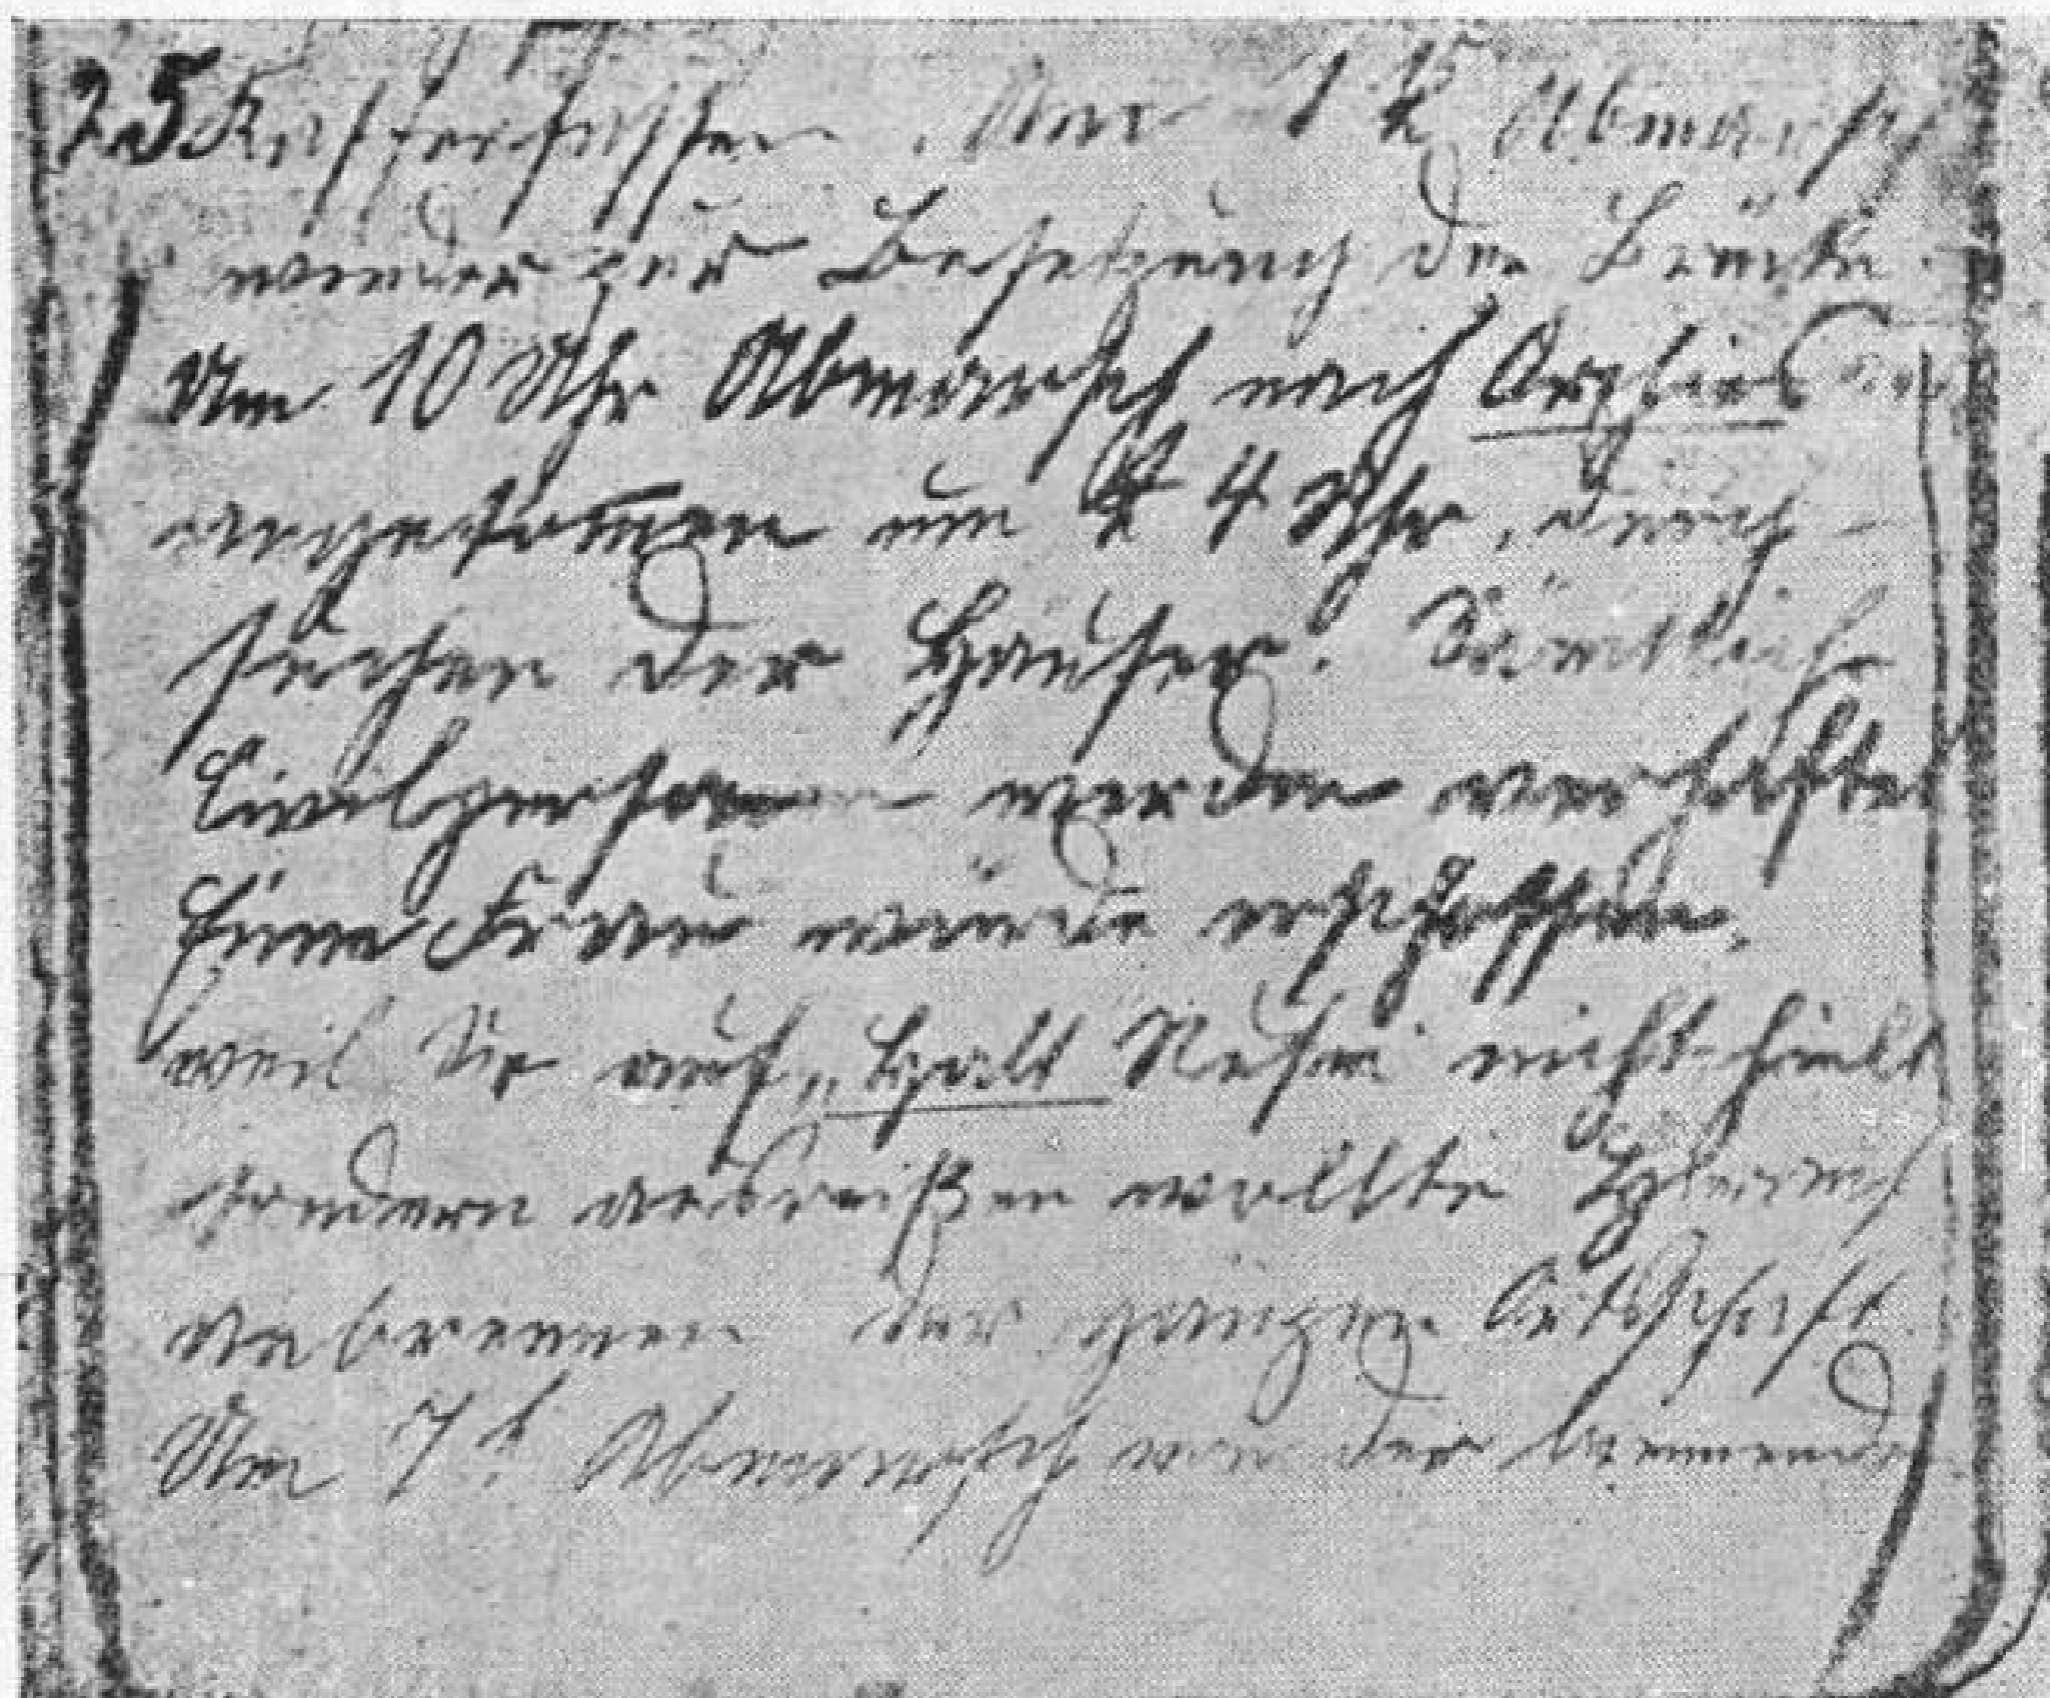 25 Kaffeefassen. Um 1 15 Abmarsch
wieder zur Besetzung der Brücke.
Um 10 Uhr Abmarsch nach Orchies
angekom̅en um 4 Uhr, durch-
suchen der Häuser. Sämtlich
Civilpersonen werden verhaftet
Eine Frau wurde erschossen,
weil sie auf „Halt Rufen nicht hielt
sondern ausreißen wollte. Hierauf
verbrennen der ganzen Ortschaft.
Um 7 h Abmarsch von der brennend